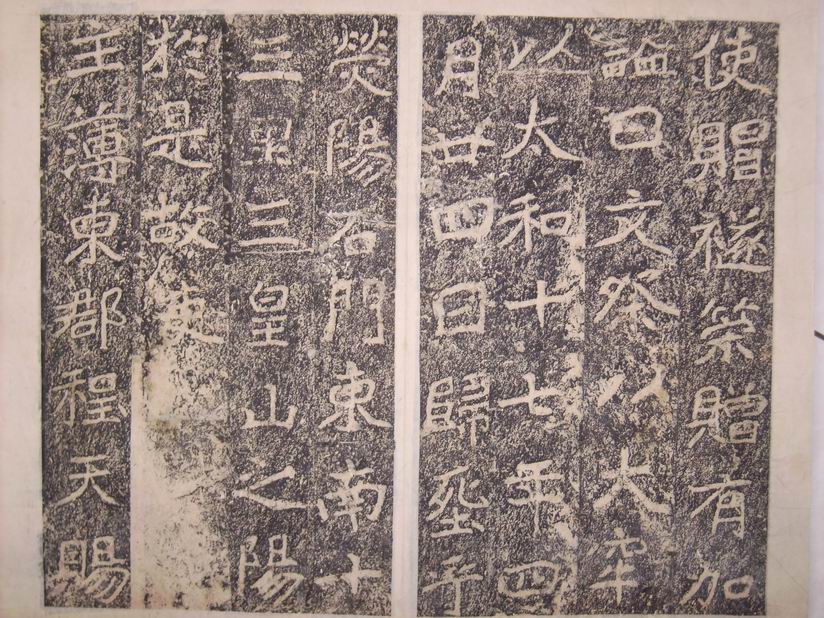 使賵襚策贈有加
謚曰文祭以太牢
以太和十七年四
月廿四日歸葬乎
熒陽石門東南十
三里三皇山之陽
於是故吏
主薄東郡程天賜